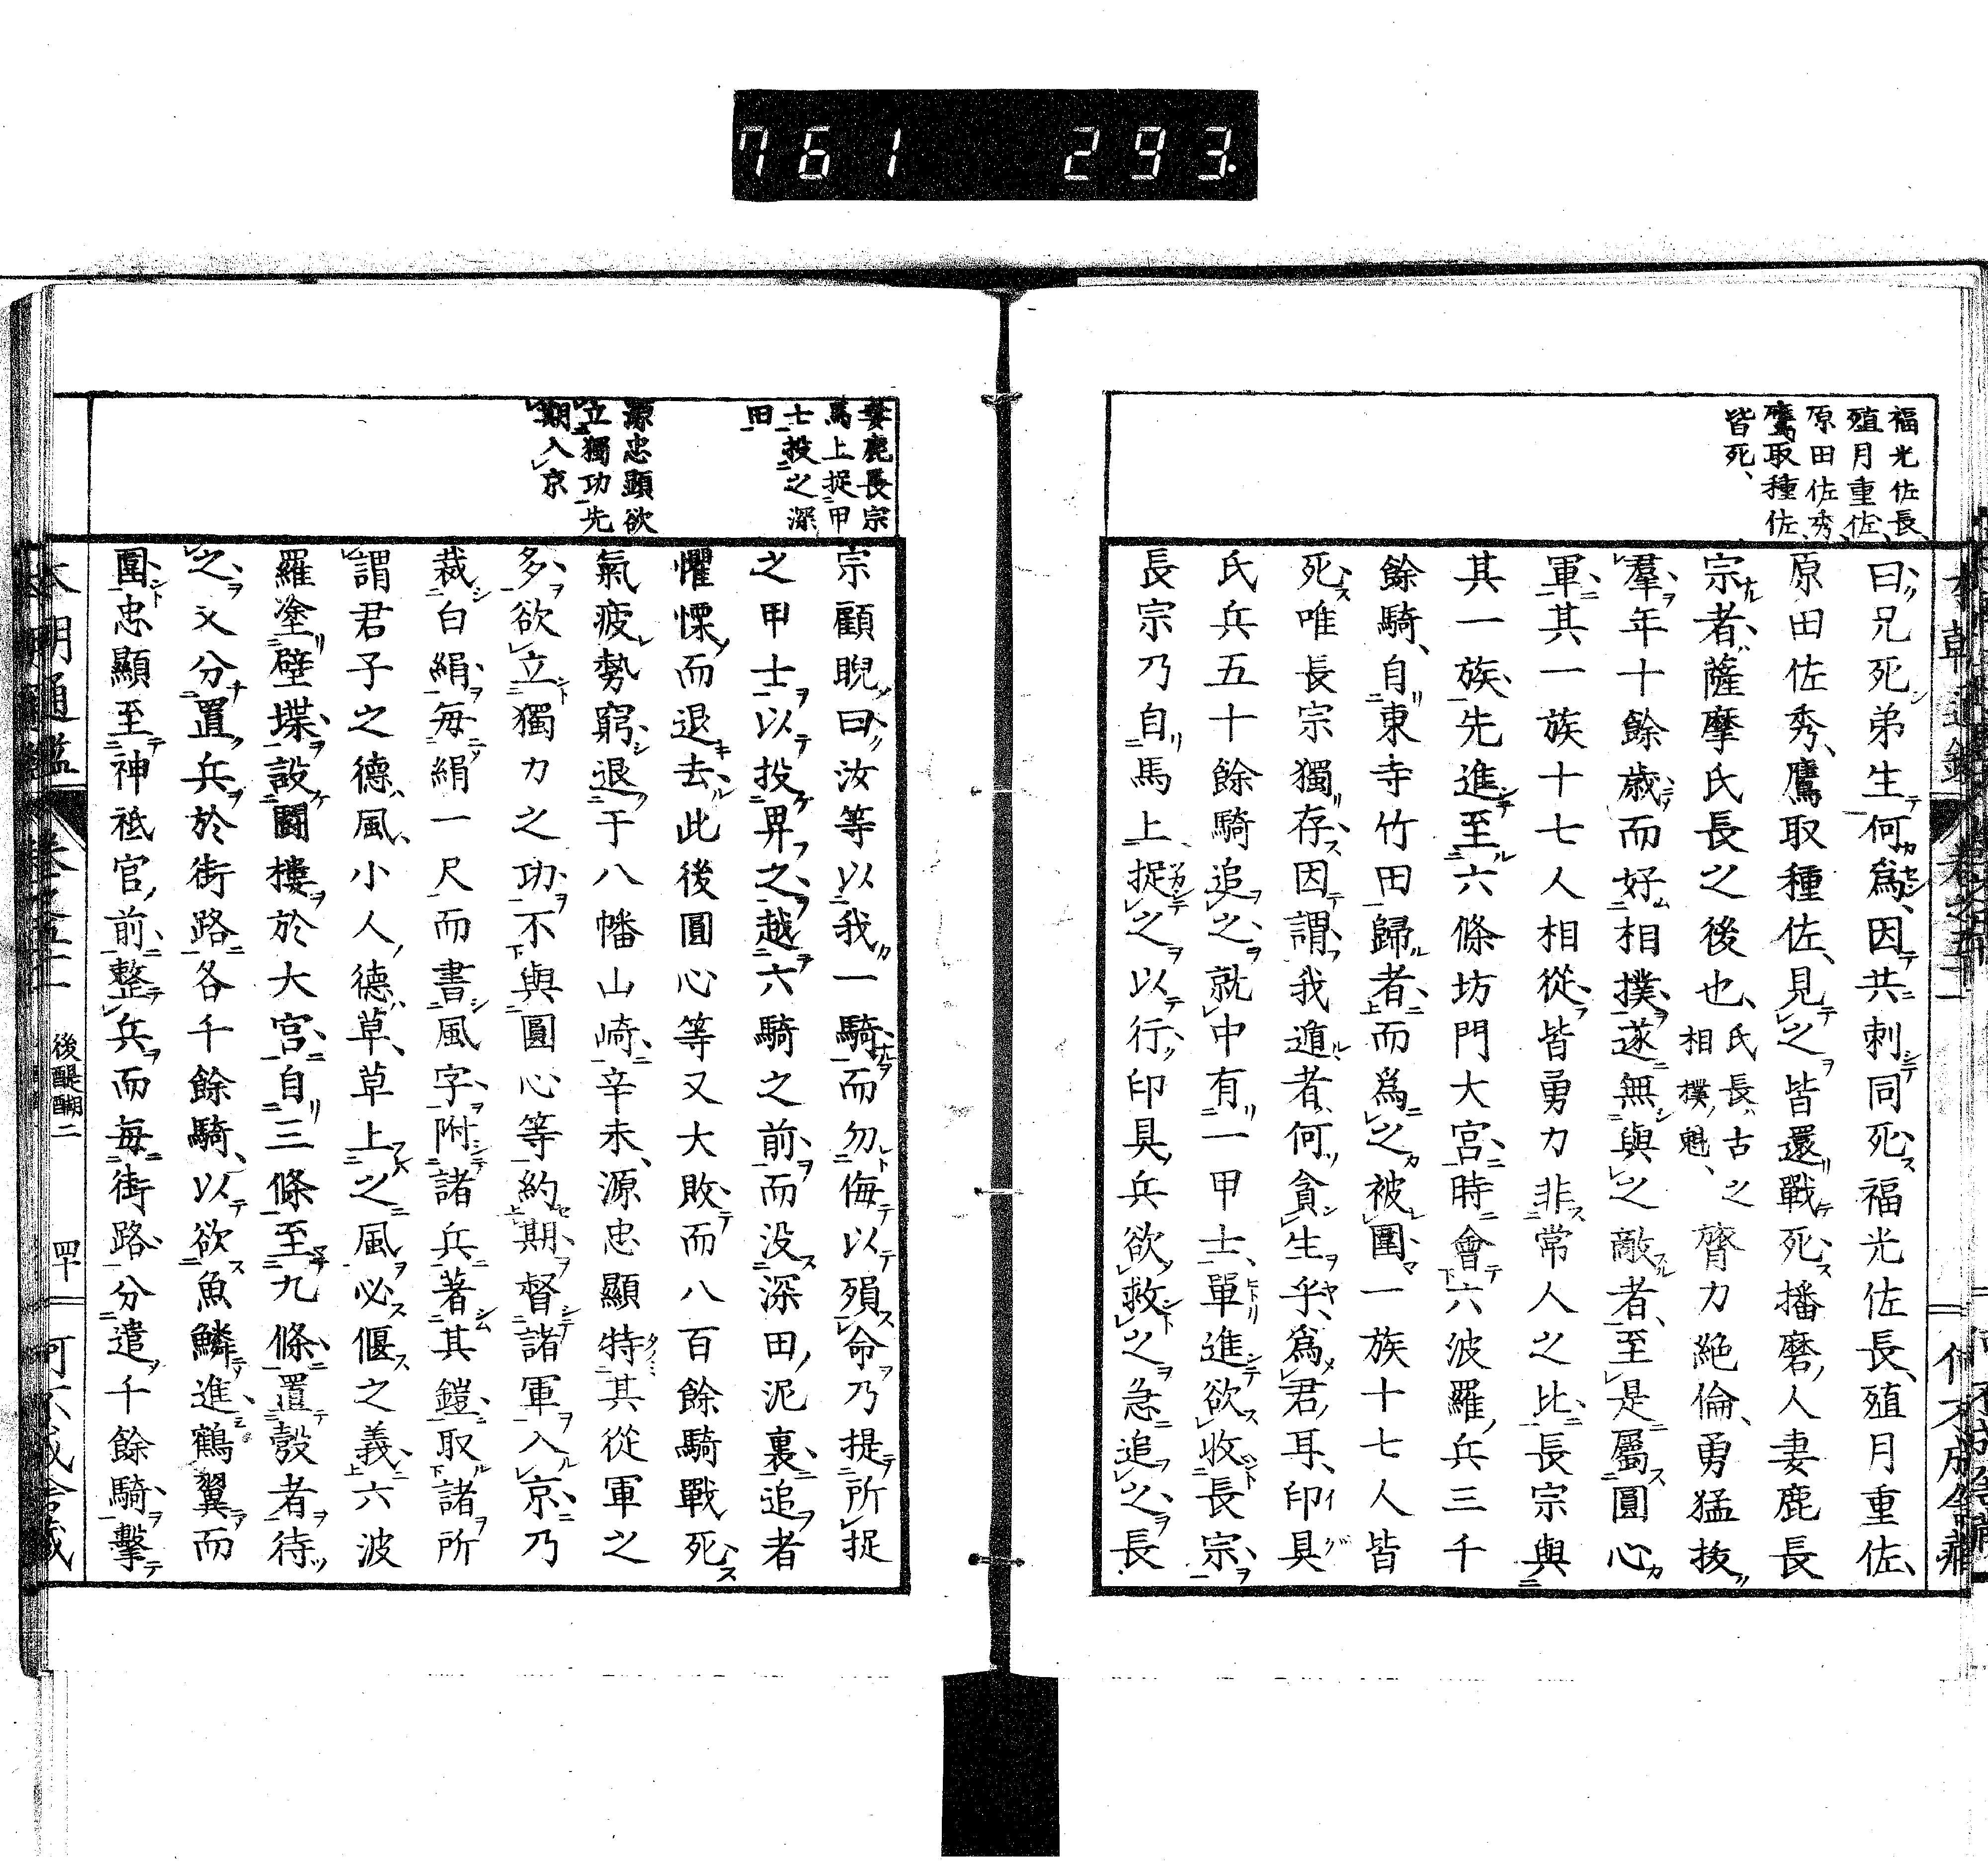 761 293.
福光佐長、
殖月重佐、
原田佐秀、
鷹取種佐、
皆死、
曰兄死弟生何爲、因共刺同死、福光佐長、殖月重佐、
原田佐秀、鷹取種佐、見之皆還戰死、播磨人妻鹿長
宗者、薩摩氏長之後也、氏長、古之相撲魁、膂力絶倫、勇猛抜
羣年十餘歳而好相撲、遂無與之敵者、至是屬圓心
軍、其一族十七人相從、皆勇力非常人之比、長宗與
其一族、先進至六條坊門大宮、時會六波羅兵三千
餘騎、自東寺竹田歸者、而爲之被圍、一族十七人皆
死、唯長宗獨存、因謂我遁者、何貪生乎、爲君耳、印具
氏兵五十餘騎追之、就中有一甲士、單進欲收長宗、
長宗乃自馬上捉之以行、印具兵欲救之急追之、長
妻鹿長宗
馬上捉甲
士投之深
田
源忠顯欲
立獨功先
期入京
宗顧睨曰、汝等以我一騎而勿侮以殞命、乃提所捉
之甲士以投畀之、越六騎之前而没深田泥裏、追者
懼慄而退去、此後圓心等又大敗、而八百餘騎戰死、
氣疲勢窮、退于八幡山崎、辛未、源忠顯特其從軍之
多、欲立獨力之功、不與圓心等約期、督諸軍入京、乃
裁白絹、毎絹一尺而書風字、附諸兵著其鎧、取諸所
謂君子之德風、小人德草、草上之風必偃之義、六波
羅塗壁堞、設鬪樓於大宮、自三條至九條、置彀者待
之、又分置兵於街路、各千餘騎、以欲魚鱗進、鶴翼而
圍、忠顯至神祇官前、整兵而毎街路、分遣千餘騎、擊
本朝通鑑
後醍醐二
四十